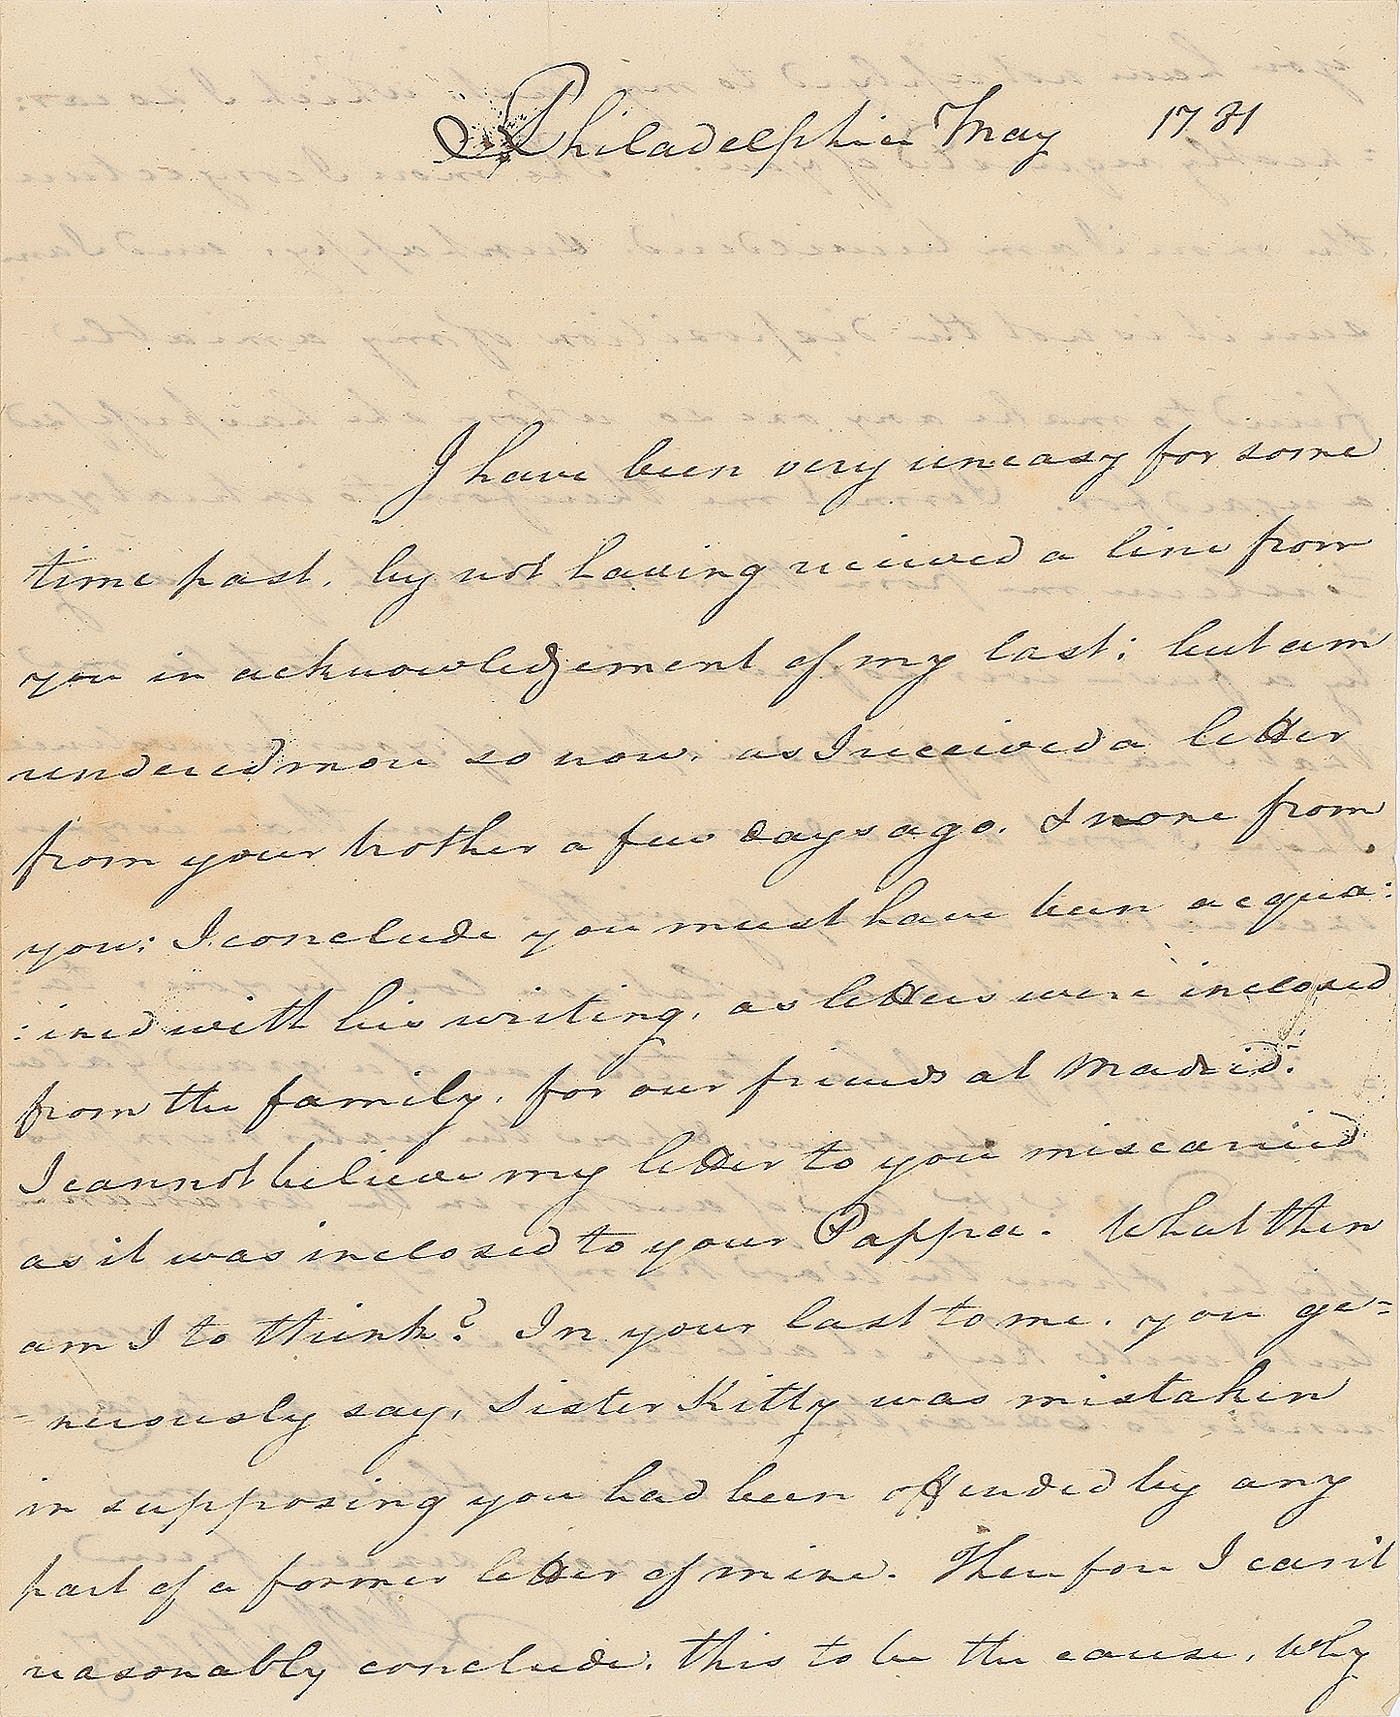 Philadelphia May 1781
I have been very uneasy for some
time past, by not having reieived a line from
you in acknowledgement of my last; but am
rendered more so now, as I received a letter
from your brother a few days ago. & none from
you; I conclude you must have been acqua:
:ined with his writing, as letters were inclosed
from the family, for our friends at Madrid.
I cannot believe my letter to you miscarried
as it was inclosed to your Pappa. What then
am I to think? In your last to me, you ge=
-nerously say, Sister Kitty was mistaken
in supposing you had been offended by any
part of a former letter of mine. Therefore I can't
reasonably conclude, this to be the cause, Why